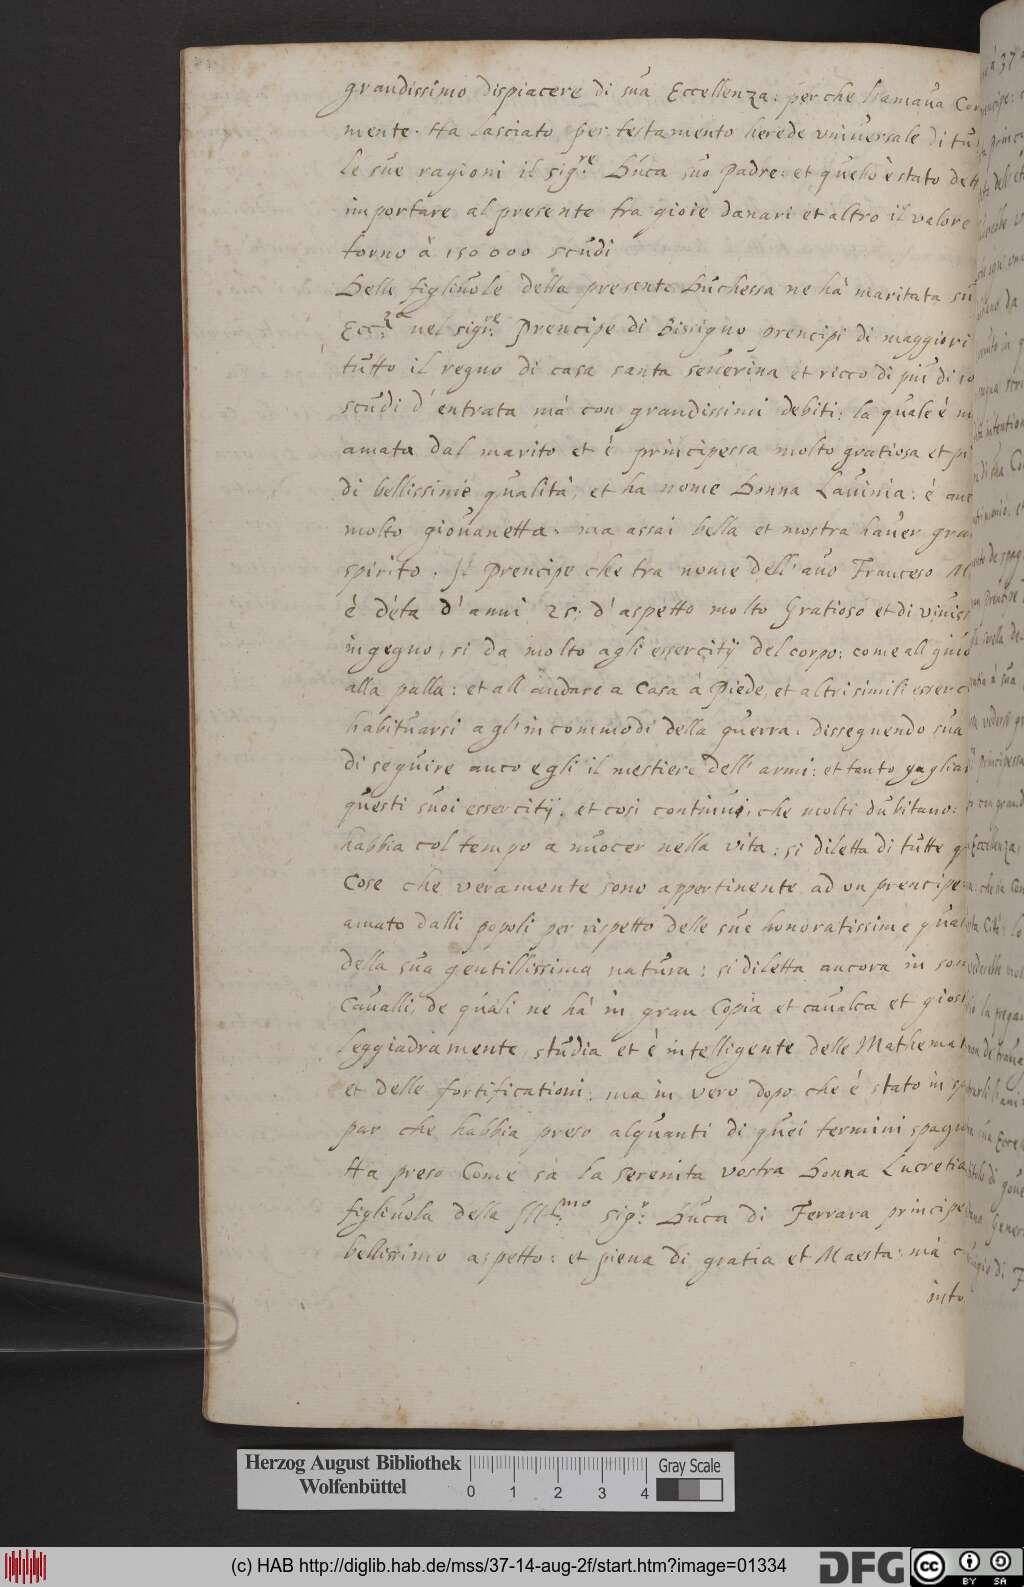 grandissimo dispiacere di sua Eccellenza: perche l'amaua Cor
mente. Ha lasciato per testamento herede vniuersale di tu
le sue ragioni il sig.re Duca suo Padre: et quello è stato dett
importare al presente fra gioie danari et altro il valore
torno à 150000 scudi
Delle figliuole della presente Duchessa ne hà maritata su
Ecc.za nel sig.re Prencipe di Bisigno prencipi di maggiori
tutto il regno di casa santa seuerina et ricco di più di 10
scudi d'entrata mà con grandissimi debiti: la quale è m
amata dal marito et è principessa molto gratiosa et pi
di bellissime qualità, et ha nome Donna Lauinia: è anc
molto giouanetta. ma assai bella et mostra hauer gra
spirito. Il Prencipe che tra nome dell'auo Franceso M
è d'eta d'anni 25: d'aspetto molto Gratioso et di viuiss
ingegno, si da molto agli essercitij del corpo: come all giuo
alla palla: et all andare a Casa à Piede, et altri simili esserci
habituarsi a gl'incommodi della guerra. dissegnendo sua
di seguire anco egli il mestiere dell' armi: et tanto gagliar
questi suoi essercitij. et cosi continui, che molti dubitano:
habbia col tempo a nuocer nella vita: si diletta di tutte q
Cose che veramente sono appertinente ad vn prencipe
amato dalli popoli per rispetto delle sue honoratissime qual
della sua gentillissima natura: si diletta ancora in som
Caualli, de quali ne hà in gran Copia et caualca et giost
leggiadramente, studia et è intelligente delle Mathemat
et delle fortificationi: ma in vero dopo che è stato in sp
par che habbia preso alquanti di quei termini spagn
Ha preso Come sà la serenita vostra Donna Lucretia
figliuola della Ill.mo sig.r Duca di Ferrara principe
bellissimo aspetto: et piena di gratia et Maesta: mà c
into
Herzog August Bibliothek
Wolfenbüttel
0 1 2 3 4
Gray Scale
(c) HAB http://diglib.hab.de/mss/37-14-aug-2f/start.htm?image=01334
DFG
cc BY SA